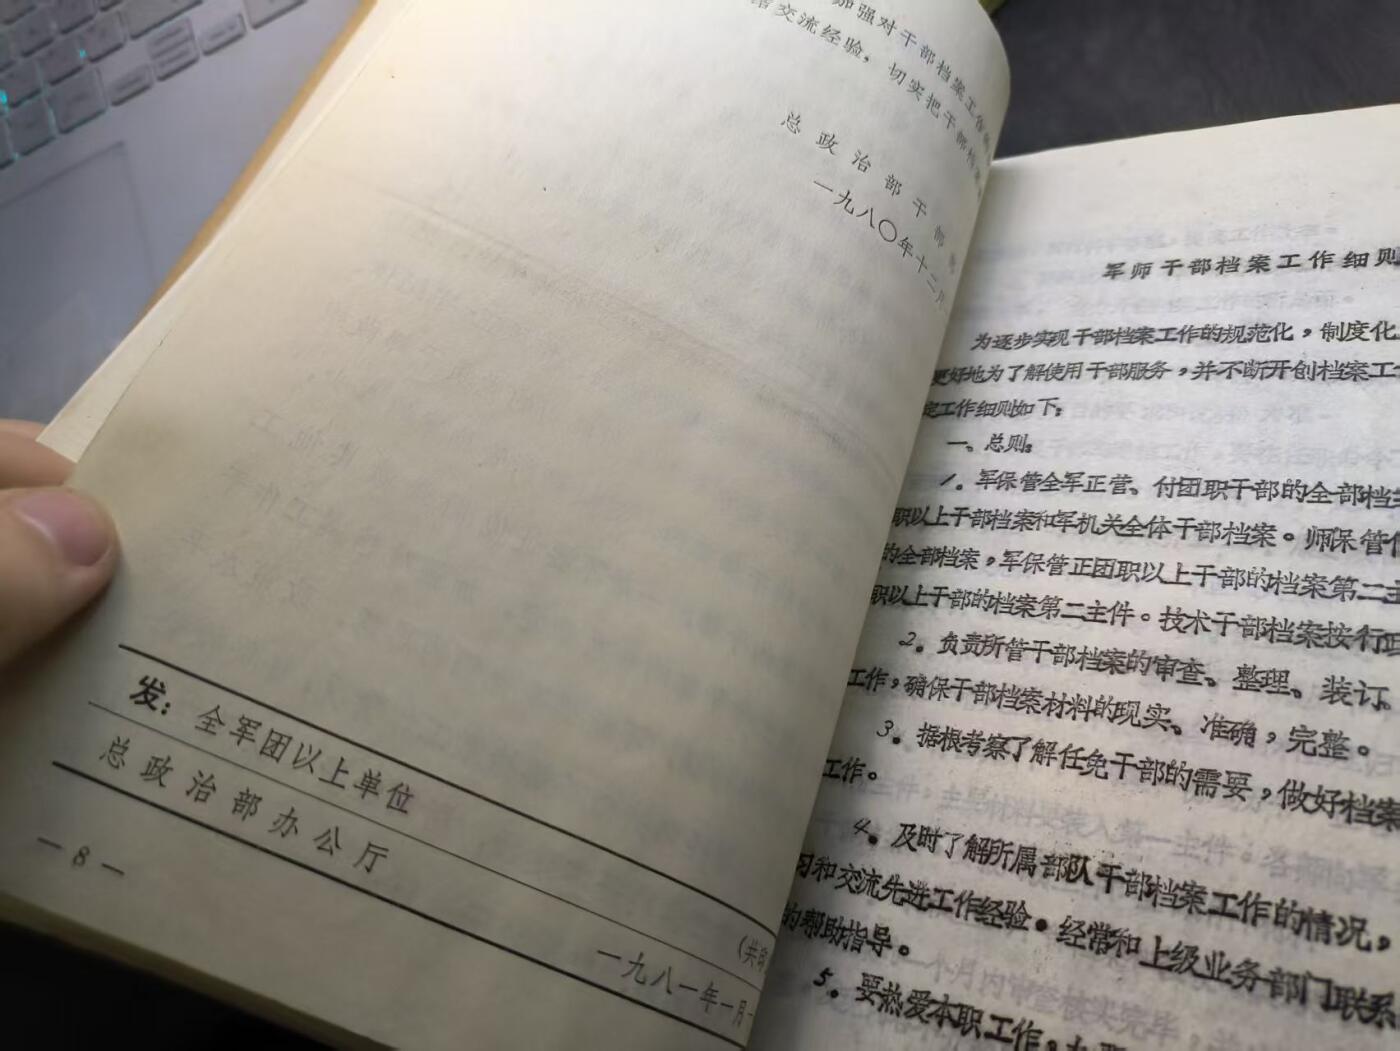 加强对干部档案工作的
交流经验，切实把干部档案
总政治部干部
一九八〇年十二月
发：全军团以上单位
总政治部办公厅
（共印
一九八一年一月
—8—
军师干部档案工作细则
为逐步实现干部档案工作的规范化，制度化
更好地为了解使用干部服务，并不断开创档案工
定工作细则如下：
一、总则：
1。军保管全军正营、付团职干部的全部档案
职以上干部档案和军机关全体干部档案。师保管
的全部档案，军保管正团职以上干部的档案第二主
职以上干部的档案第二主件。技术干部档案按行政
2。负责所管干部档案的审查、整理、装订、
工作，确保干部档案材料的现实、准确，完整。
3。据根考察了解任免干部的需要，做好档案
工作。
4。及时了解所属部队干部档案工作的情况，
习和交流先进工作经验。经常和上级业务部门联系
的帮助指导。
5。要热爱本职工作，